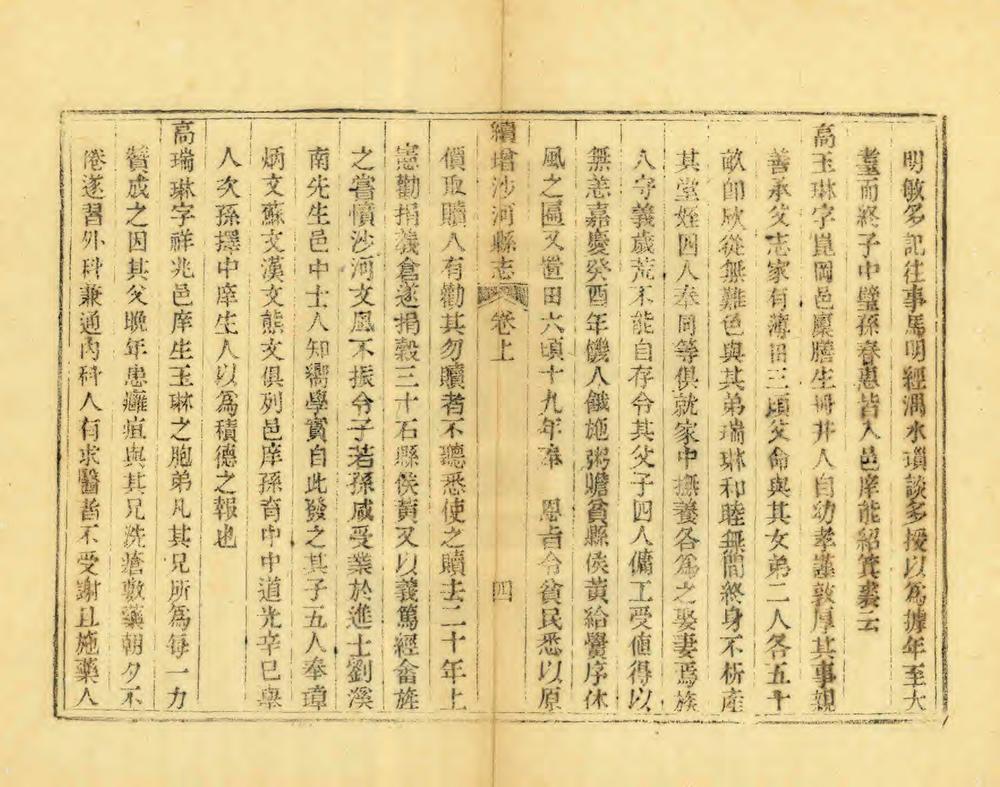 明敏多記往事馬明經湡水瑣談多援以為據年至大
耋而終子中璧孫春惠皆入邑庠能紹箕裘云
高玉琳字崑岡邑廩膳生冊井人自幼孝謹敦厚其事親
善承父志家有薄田三頃父命與其女弟二人各五十
畝卽欣從無難色與其弟瑞琳和睦無間終身不析產
其堂姪四人奉同等俱就家中撫養各為之娶妻焉族
人守義歲荒不能自存令其父子四人傭工受值得以
無恙嘉慶癸酉年饑人餓施粥贍貧縣侯黃給黌序休
風之匾又置田六頃十九年奉 恩旨令貧民悉以原
續增沙河縣志 卷上 四
價取贖人有勸其勿贖者不聽悉使之贖去二十年上
憲勸捐義倉遂捐穀三十石縣侯黃又以義篤經畬旌
之嘗憤沙河文風不振令子若孫咸受業於進士劉溪
南先生邑中士人知嚮學實自此發之其子五人奉璋
炳文蘇文漢文熊文俱列邑庠孫育中中道光辛巳舉
人次孫擇中庠生人以為積德之報也
高瑞琳字祥兆邑庠生玉琳之胞弟凡其兄所為每一力
贊成之因其父晚年患癰疽與其兄洗瘡敷藥朝夕不
倦遂習外科兼通內科人有求醫者不受謝且施藥人